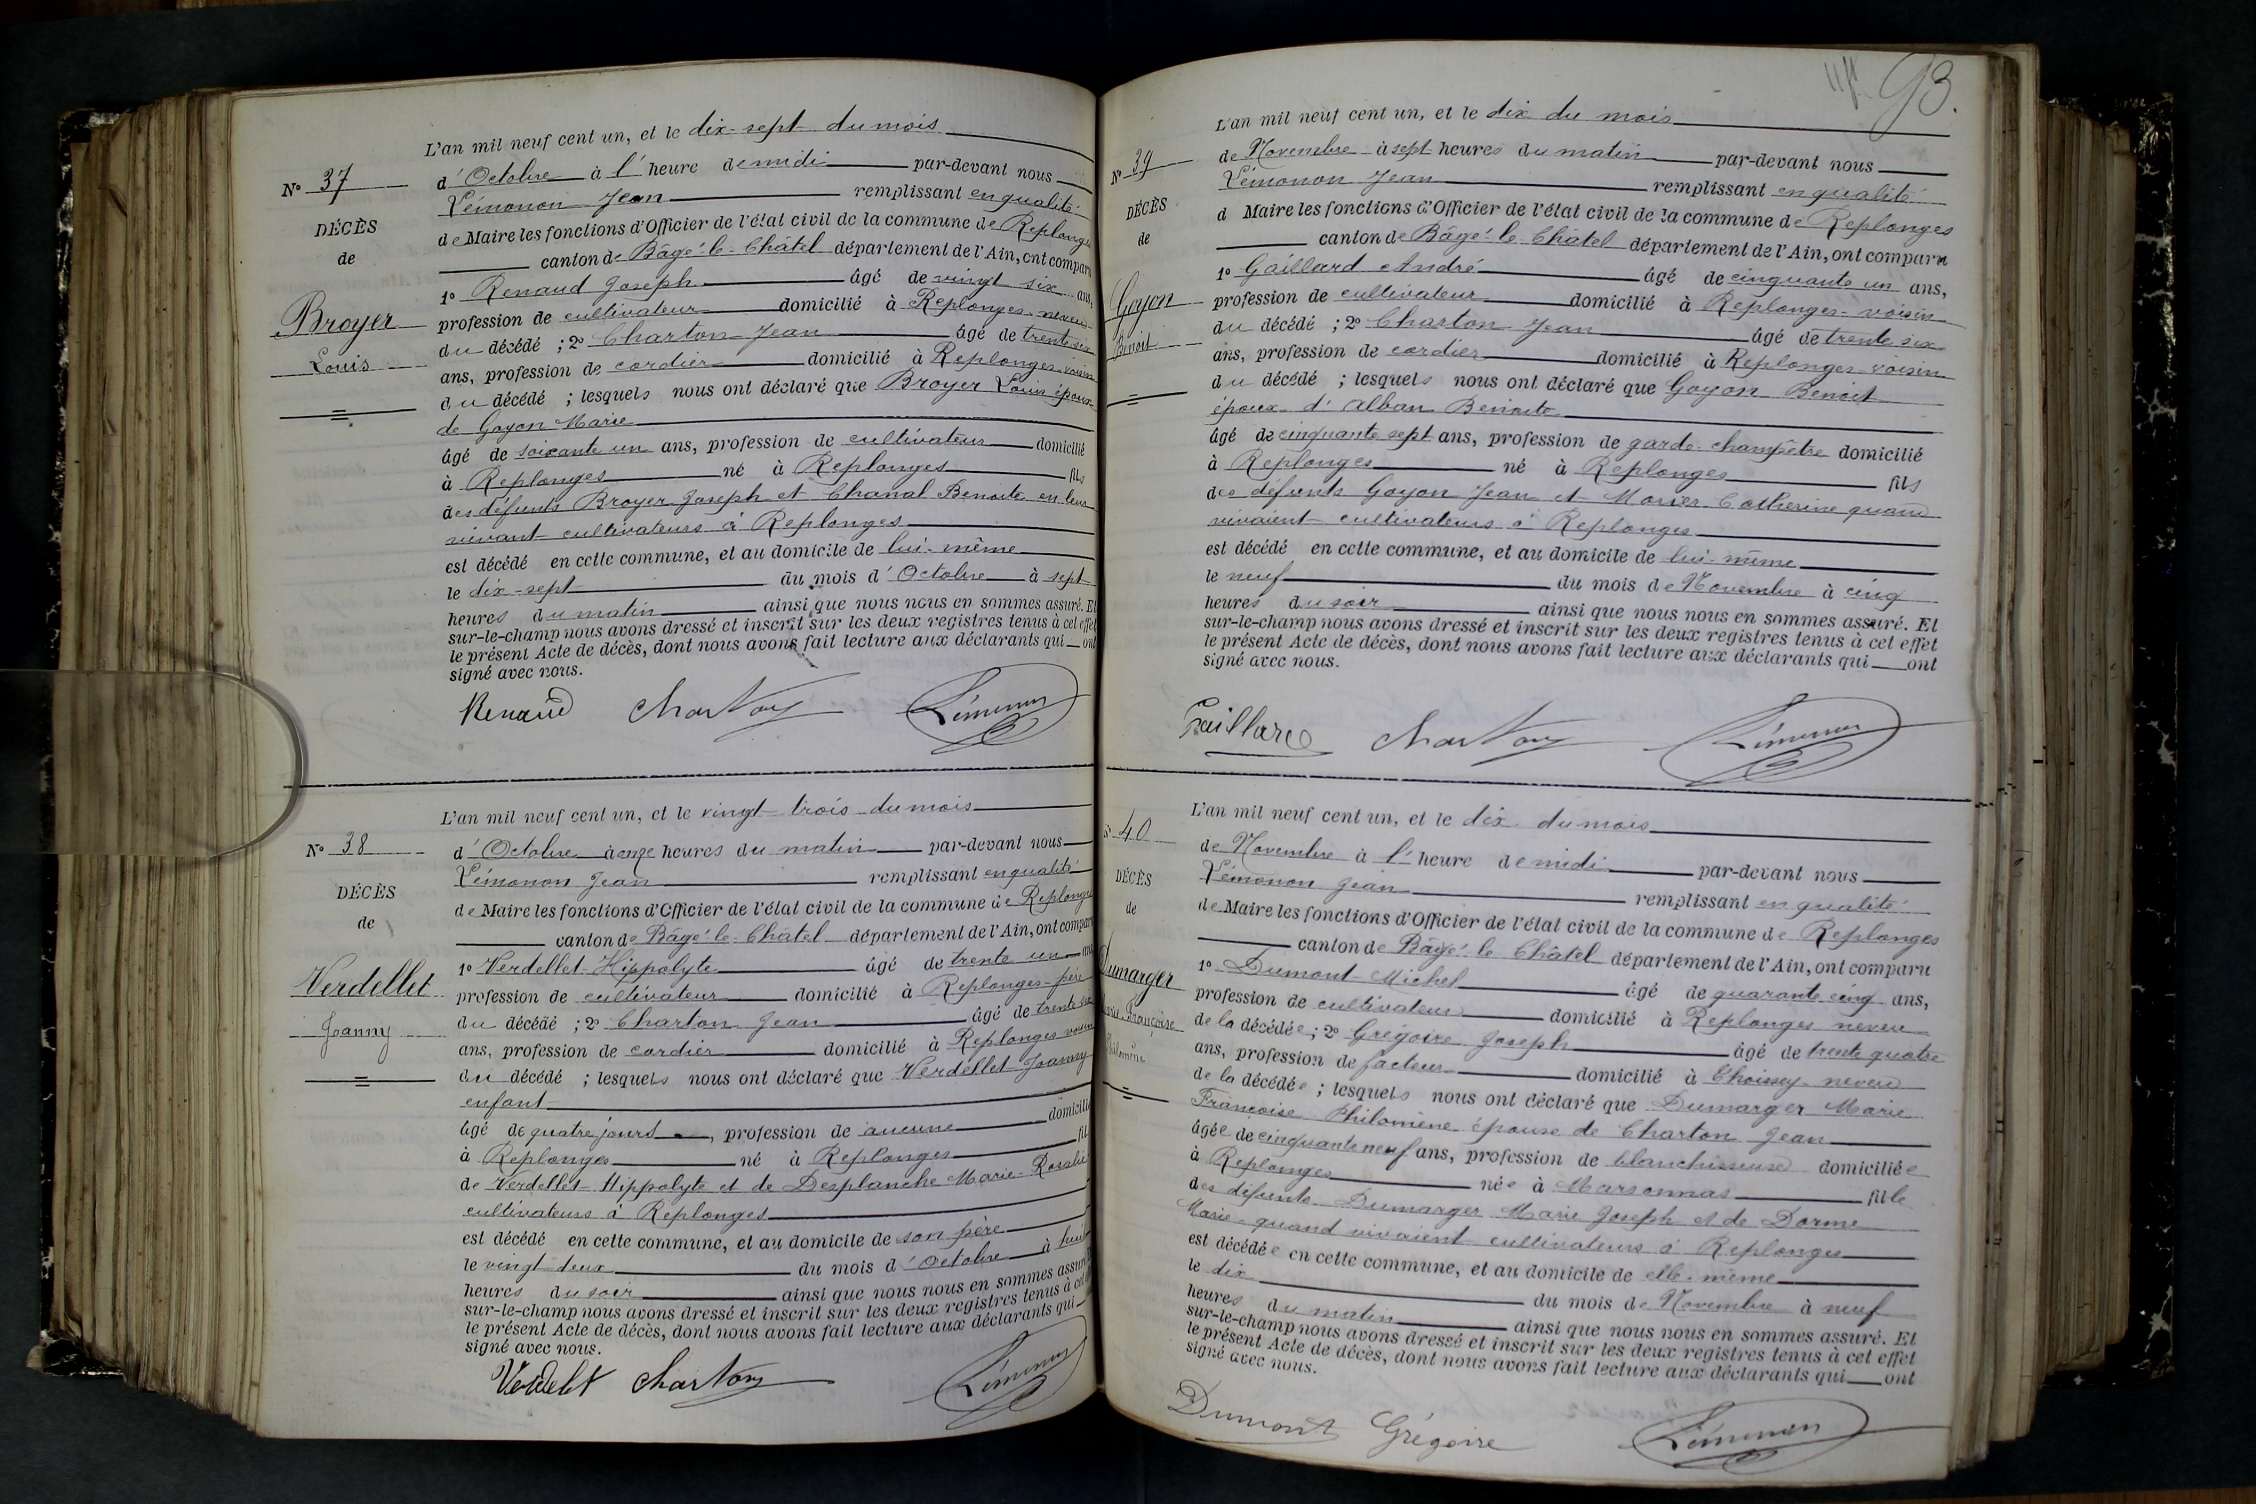 L'an mil neuf cent un, et le dix-sept du mois
N° 37
d'Octobre à l'heure de midi par-devant nous
Lémonon Jean remplissant en qualité
DÉCÈS
de Maire les fonctions d'Officier de l'état civil de la commune de Replonges
de
canton de Bâgé-le-Châtel département de l'Ain, ont comparu
1° Renaud Joseph âgé de vingt six ans,
Broyer
profession de cultivateur domicilié à Replonges neveu
du décédé ; 2° Charton Jean âgé de trente six
Louis
ans, profession de cordier domicilié à Replonges voisin
du décédé ; lesquels nous ont déclaré que Broyer Louis époux
de Goyon Marie
âgé de soixante un ans, profession de cultivateur domicilié
à Replonges né à Replonges fils
des défunts Broyer Joseph et Chanal Benoite en leur
vivant cultivateurs à Replonges
est décédé en cette commune, et au domicile de lui-même
le dix-sept du mois d'Octobre à sept
heures du matin ainsi que nous nous en sommes assuré. Et
sur-le-champ nous avons dressé et inscrit sur les deux registres tenus à cet effet
le présent Acte de décès, dont nous avons fait lecture aux déclarants qui ont
signé avec nous.
Renaud Charton Lémonon
L'an mil neuf cent un, et le vingt trois du mois
N° 38
d'Octobre à onze heures du matin par-devant nous
Lémonon Jean remplissant en qualité
DÉCÈS
de Maire les fonctions d'Officier de l'état civil de la commune de Replonges
de
canton de Bâgé-le-Châtel département de l'Ain, ont comparu
1° Verdellet Hippolyte âgé de trente un ans
Verdellet
profession de cultivateur domicilié à Replonges père
du décédé ; 2° Charton Jean âgé de trente six
Joanny
ans, profession de cordier domicilié à Replonges voisin
du décédé ; lesquels nous ont déclaré que Verdellet Joanny
enfant
âgé de quatre jours, profession de aucune domicilié
à Replonges né à Replonges fils
de Verdellet Hippolyte et de Desplanche Marie-Rosalie
cultivateurs à Replonges
est décédé en cette commune, et au domicile de son père
le vingt-deux du mois d'Octobre à huit
heures du soir ainsi que nous nous en sommes assuré
sur-le-champ nous avons dressé et inscrit sur les deux registres tenus à cet
le présent Acte de décès, dont nous avons fait lecture aux déclarants qui
signé avec nous.
Verdelet Charton Lémonon
93.
L'an mil neuf cent un, et le dix du mois
N° 39
de Novembre à sept heures du matin par-devant nous
Lémonon Jean remplissant en qualité
DÉCÈS
d Maire les fonctions d'Officier de l'état civil de la commune de Replonges
de
canton de Bâgé-le-Châtel département de l'Ain, ont comparu
1° Gaillard André âgé de cinquante un ans,
Goyon
profession de cultivateur domicilié à Replonges voisin
du décédé ; 2° Charton Jean âgé de trente six
Benoit
ans, profession de cordier domicilié à Replonges voisin
du décédé ; lesquels nous ont déclaré que Goyon Benoit
époux d'Alban Benoite
âgé de cinquante sept ans, profession de garde-champêtre domicilié
à Replonges né à Replonges fils
des défunts Goyon Jean et Morier Catherine quand
vivaient cultivateurs à Replonges
est décédé en cette commune, et au domicile de lui-même
le neuf du mois de Novembre à cinq
heures du soir ainsi que nous nous en sommes assuré. Et
sur-le-champ nous avons dressé et inscrit sur les deux registres tenus à cet effet
le présent Acte de décès, dont nous avons fait lecture aux déclarants qui ont
signé avec nous.
Gaillard Charton Lémonon
L'an mil neuf cent un, et le dix du mois
N° 40
de Novembre à l'heure de midi par-devant nous
Lémonon Jean remplissant en qualité
DÉCÈS
de Maire les fonctions d'Officier de l'état civil de la commune de Replonges
de
canton de Bâgé-le-Châtel département de l'Ain, ont comparu
1° Dumont Michel âgé de quarante cinq ans,
Dumarger
profession de cultivateur domicilié à Replonges neveu
Marie-Françoise
de la décédée ; 2° Grégoire Joseph âgé de trente quatre
Philomène
ans, profession de facteur domicilié à Choissey neveu
de la décédée ; lesquels nous ont déclaré que Dumarger Marie
Françoise Philomène épouse de Charton Jean
âgée de cinquante neuf ans, profession de blanchisseuse domiciliée
à Replonges née à Marsonnas fille
des défunts Dumarger Marie Joseph et de Dorme
Marie quand vivaient cultivateurs à Replonges
est décédée en cette commune, et au domicile de elle-même
le dix du mois de Novembre à neuf
heures du matin ainsi que nous nous en sommes assuré. Et
sur-le-champ nous avons dressé et inscrit sur les deux registres tenus à cet effet
le présent Acte de décès, dont nous avons fait lecture aux déclarants qui ont
signé avec nous.
Dumont Grégoire Lémonon